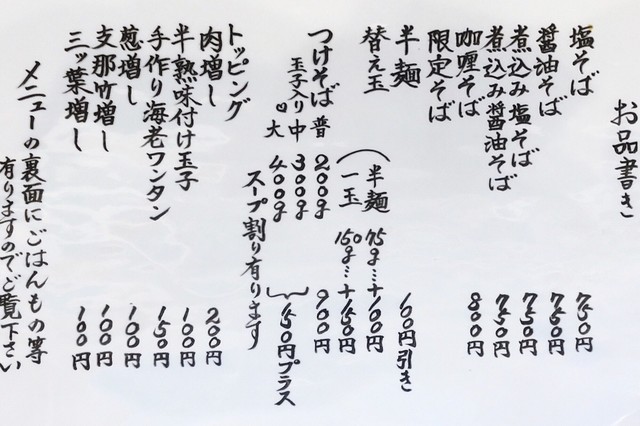 お品書き
塩そば 750円
醤油そば 750円
煮込み塩そば 750円
煮込み醤油そば 750円
咖喱そば 800円
限定そば
半麺 60円引き
替え玉（半麺 75g…+100円
一玉 150g…+150円
つけそば 普 200g 900円
玉子入り 中 300g
大 400g 150円プラス
スープ割り有ります
トッピング
肉増し 200円
半熟味付け玉子 100円
手作り海老ワンタン 150円
葱増し 100円
支那竹増し 100円
三ッ葉増し 100円
メニューの裏面にごはんもの等
有りますのでご覧下さい